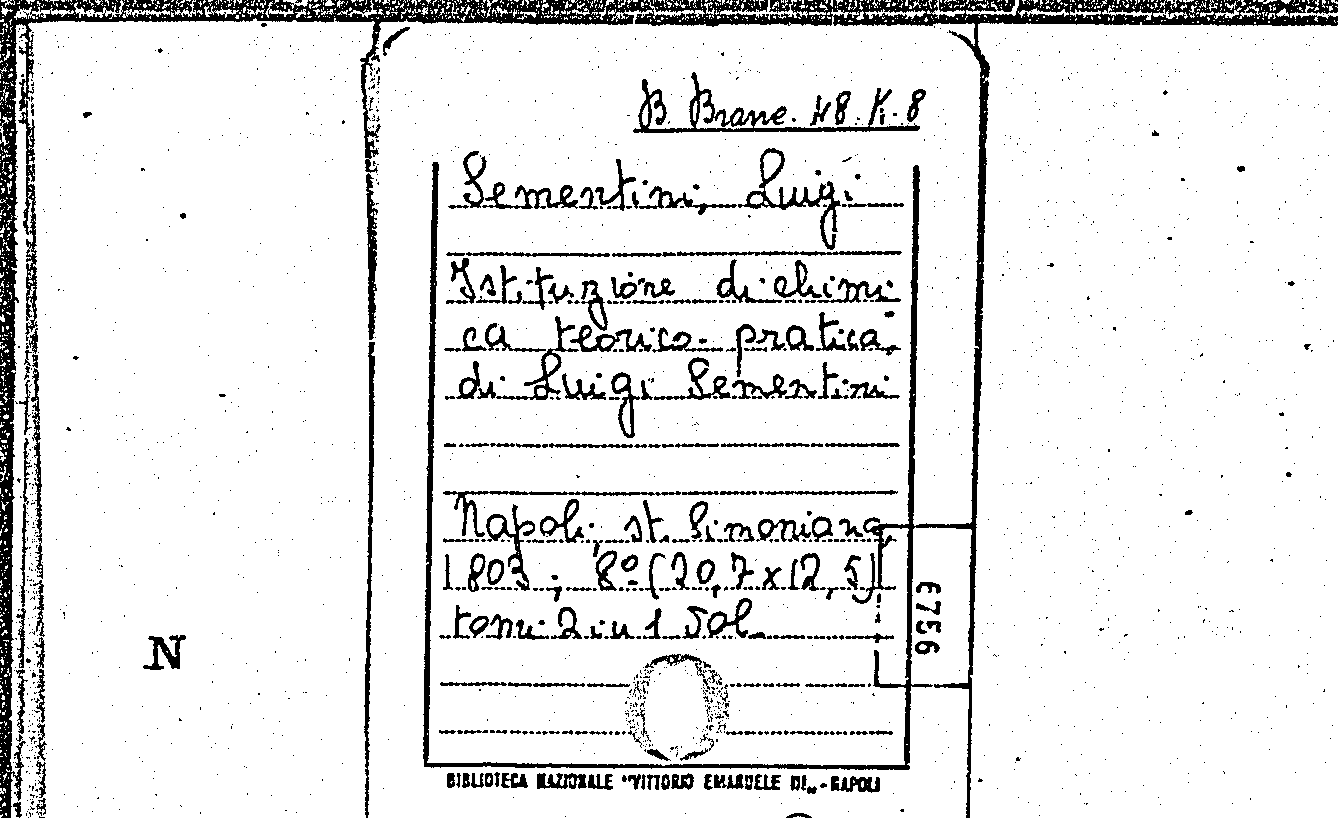 B Branc. 48. K. 8
Sementini, Luigi
Istituzione di chimi
ca teorico-pratica,
di Luigi Sementini
Napoli, st. Simoniana,
1803; 8º (20,7x12,5)
tomi 2 in 1 vol.
6756
N
BIBLIOTECA NAZIONALE "VITTORIO EMANUELE III" - NAPOLI